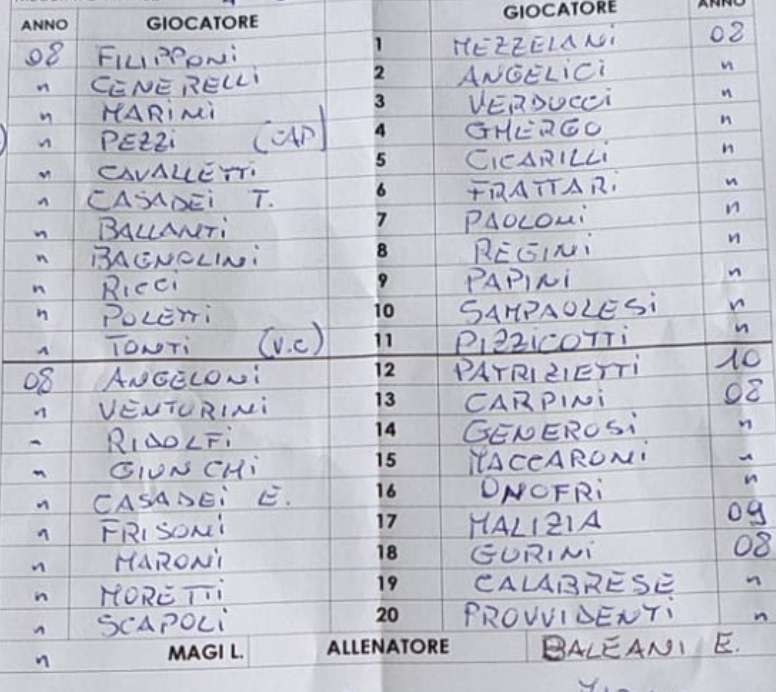 ANNO GIOCATORE GIOCATORE ANNO
08 FILIPPONI 1 MEZZELANI 08
" CENERELLI 2 ANGELICI "
" MARINI 3 VERDUCCI "
" PEZZI (CAP) 4 GHERGO "
" CAVALLETTI 5 CICARILLI "
" CASADEI T. 6 FRATTARI "
" BALLANTI 7 PAOLONI "
" BAGNOLINI 8 REGINI "
" RICCI 9 PAPINI "
" POLETTI 10 SAMPAOLESI "
" TONTI (V.C) 11 PIZZICOTTI "
08 ANGELONI 12 PATRIZIETTI 10
" VENTURINI 13 CARPINI 08
" RIDOLFI 14 GENEROSI "
" GIUNCHI 15 MACCARONI "
" CASADEI E. 16 ONOFRI "
" FRISONI 17 MALIZIA 09
" MARONI 18 GURINI 08
" MORETTI 19 CALABRESE "
" SCAPOLI 20 PROVVIDENTI "
" MAGI L. ALLENATORE BALEANI E.